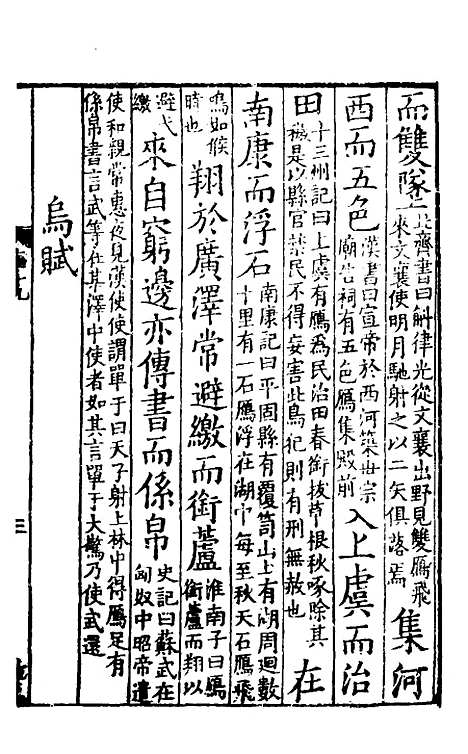 而雙墜北齊書曰斛律光從文襄出野見雙鴈飛來文襄使明月馳射之以二矢俱落焉集河
西而五色漢書曰宣帝於西河築世宗廟告祠有五色鴈集殿前入上虞而治
田十三州記曰上虞有鴈為民治田春銜拔草根秋啄除其穢是以縣官禁民不得妄害此鳥犯則有刑無赦也在
南康而浮石南康記曰平固縣有覆笥山上有湖周迴數十里有一石鴈浮在湖中每至秋天石鴈飛
鳴如候時也翔於廣澤常避繳而銜蘆淮南子曰鴈銜蘆而翔以
避弋繳來自窮邊亦傳書而係帛史記曰蘇武在匈奴中昭帝遣
使和親常惠夜見漢使使謂單于曰天子射上林中得鴈足有係帛書言武等在其澤中使者如其言單于大驚乃使武還
烏賦
三